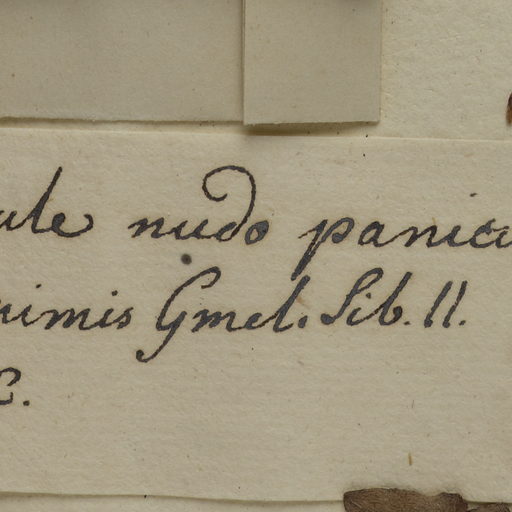 ule nudo panicu
nimis Gmel. Sib. II.
c.